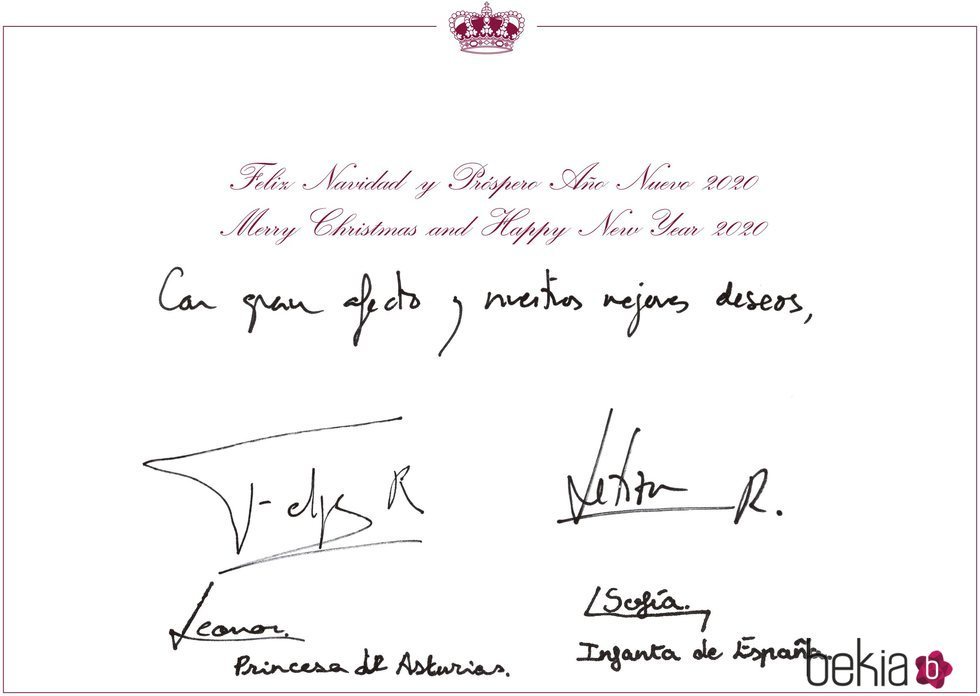 Feliz Navidad y Próspero Año Nuevo 2020
Merry Christmas and Happy New Year 2020
Con gran afecto y nuestros mejores deseos,
Felipe R
Letizia R.
Leonor.
Princesa de Asturias.
Sofía.
Infanta de España.
bekia b